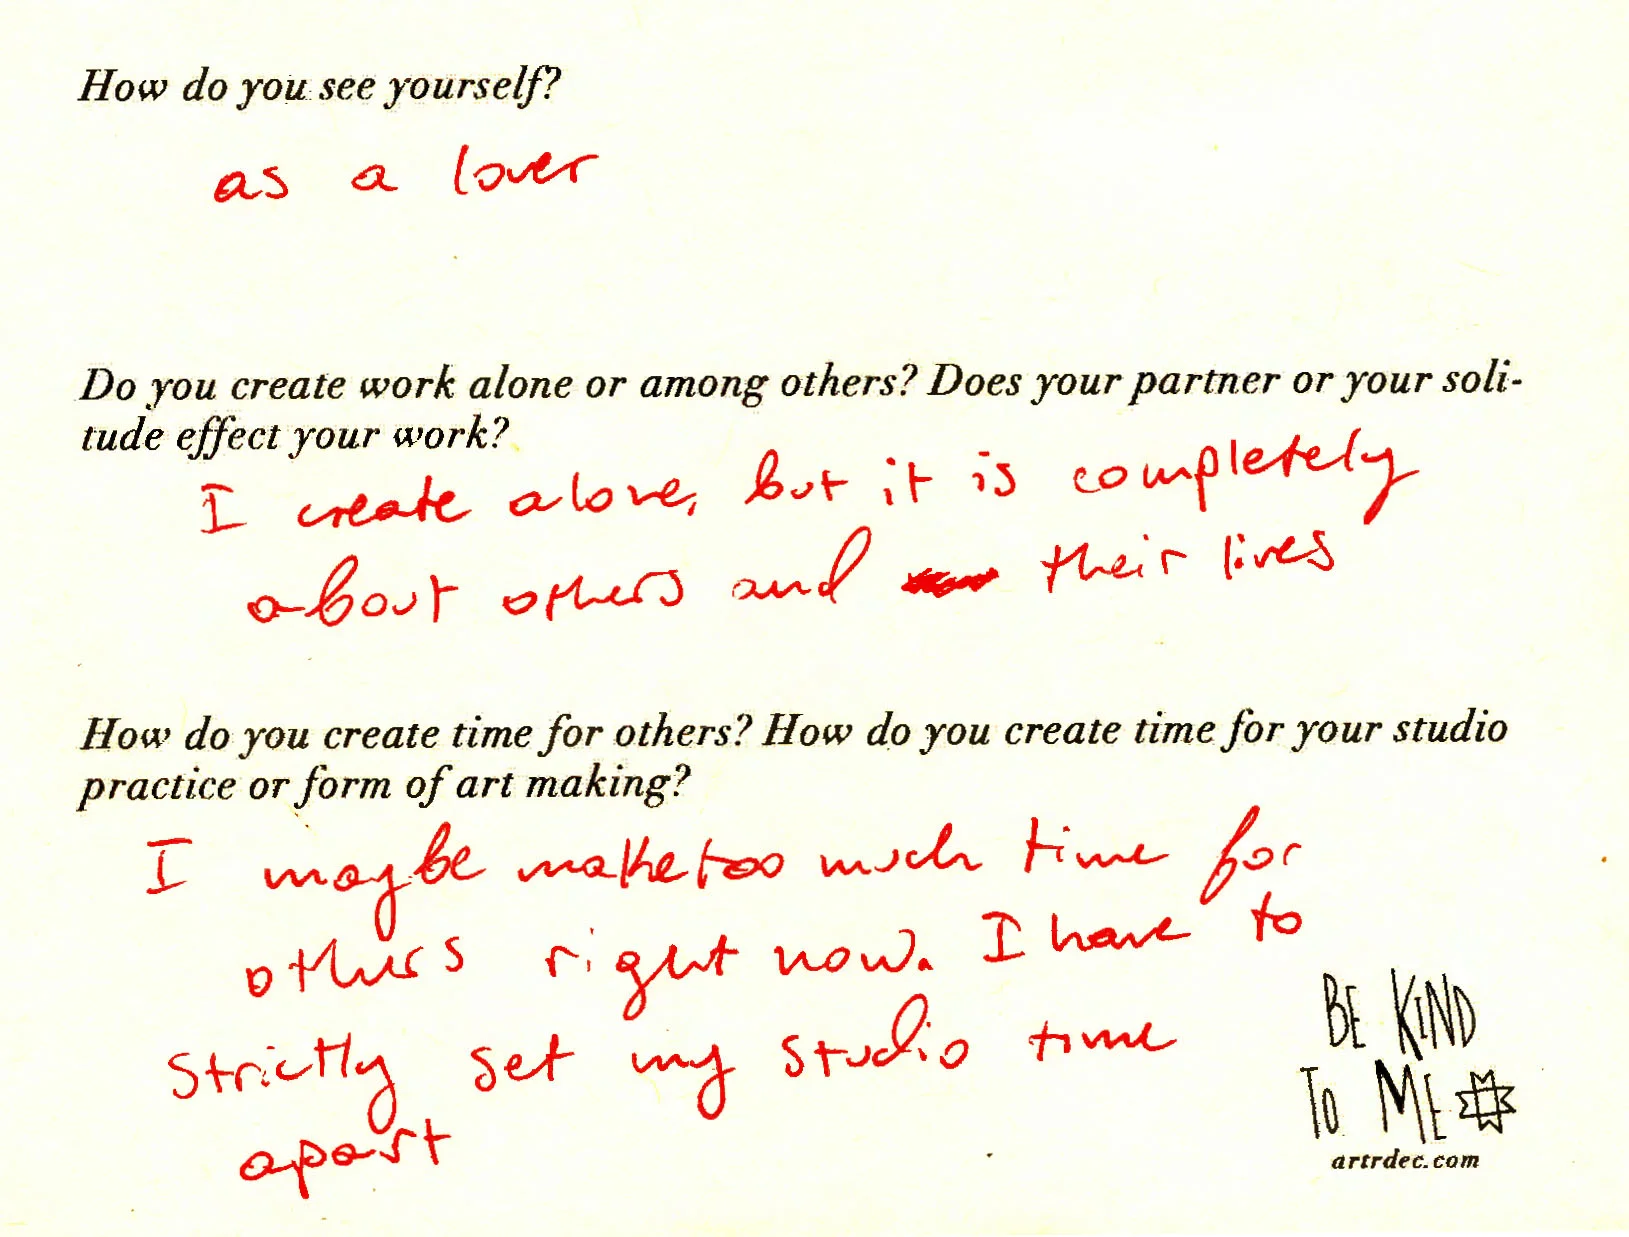 How do you see yourself?
as a lover
Do you create work alone or among others? Does your partner or your soli-
tude effect your work?
I create alone, but it is completely
about others and their lives
How do you create time for others? How do you create time for your studio
practice or form of art making?
I maybe make too much time for
others right now. I have to
strictly set my studio time
apart
BE KIND
TO ME
artrdec.com